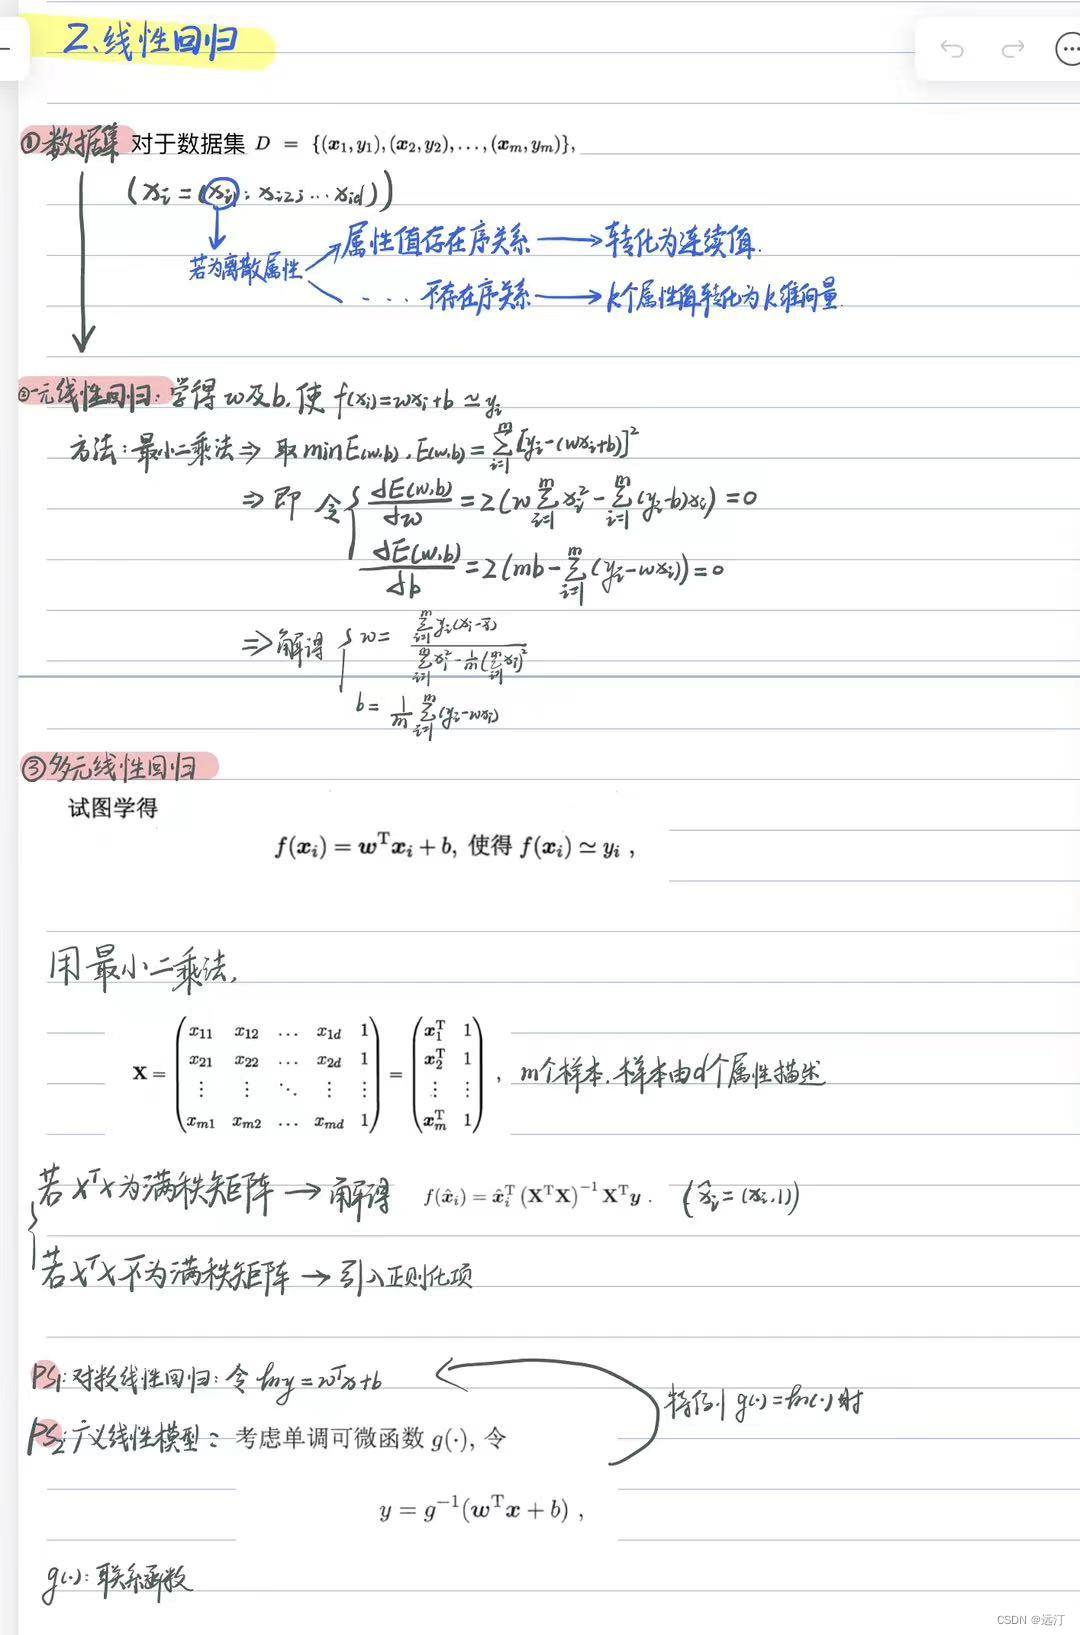 2、线性回归
①数据集 对于数据集 D = {(x₁,y₁),(x₂,y₂),...,(xₘ,yₘ)},
(xᵢ=(xᵢ₁; xᵢ₂; ... xᵢd))
属性值存在序关系 → 转化为连续值.
若为离散属性
.... 不存在序关系 → k个属性值转化为k维向量.
②一元线性回归: 学得w及b, 使 f(xᵢ)=wxᵢ+b ≃ yᵢ
方法: 最小二乘法 ⇒ 取 min E(w,b), E(w,b)=∑ᵢ₌₁ᵐ[yᵢ-(wxᵢ+b)]²
⇒ 即 令 { dE(w,b)/dw = 2(w∑ᵢ₌₁ᵐxᵢ²-∑ᵢ₌₁ᵐ(yᵢ-b)xᵢ)=0
dE(w,b)/db = 2(mb-∑ᵢ₌₁ᵐ(yᵢ-wxᵢ))=0
⇒ 解得 { w= ∑ᵢ₌₁ᵐyᵢ(xᵢ-x̄) / (∑ᵢ₌₁ᵐxᵢ²-1/m(∑ᵢ₌₁ᵐxᵢ)²)
b= 1/m ∑ᵢ₌₁ᵐ(yᵢ-wxᵢ)
③多元线性回归
试图学得
f(xᵢ) = wᵀxᵢ + b, 使得 f(xᵢ) ≃ yᵢ ,
用最小二乘法,
X = (x₁₁ x₁₂ ... x₁d 1; x₂₁ x₂₂ ... x₂d 1; ⋮ ⋮ ⋱ ⋮ ⋮; xₘ₁ xₘ₂ ... xₘd 1) = (x₁ᵀ 1; x₂ᵀ 1; ⋮ ⋮; xₘᵀ 1) , m个样本, 样本由d个属性描述
若XᵀX为满秩矩阵 → 解得 f(x̂ᵢ) = x̂ᵢᵀ(XᵀX)⁻¹Xᵀy . (x̂ᵢ=(xᵢ,1))
若XᵀX不为满秩矩阵 → 引入正则化项
PS₁: 对数线性回归: 令 lny=wᵀx+b
特例 g(·)=ln(·)时
PS₂: 广义线性模型: 考虑单调可微函数 g(·), 令
y = g⁻¹(wᵀx + b) ,
g(·): 联系函数
CSDN @远汀